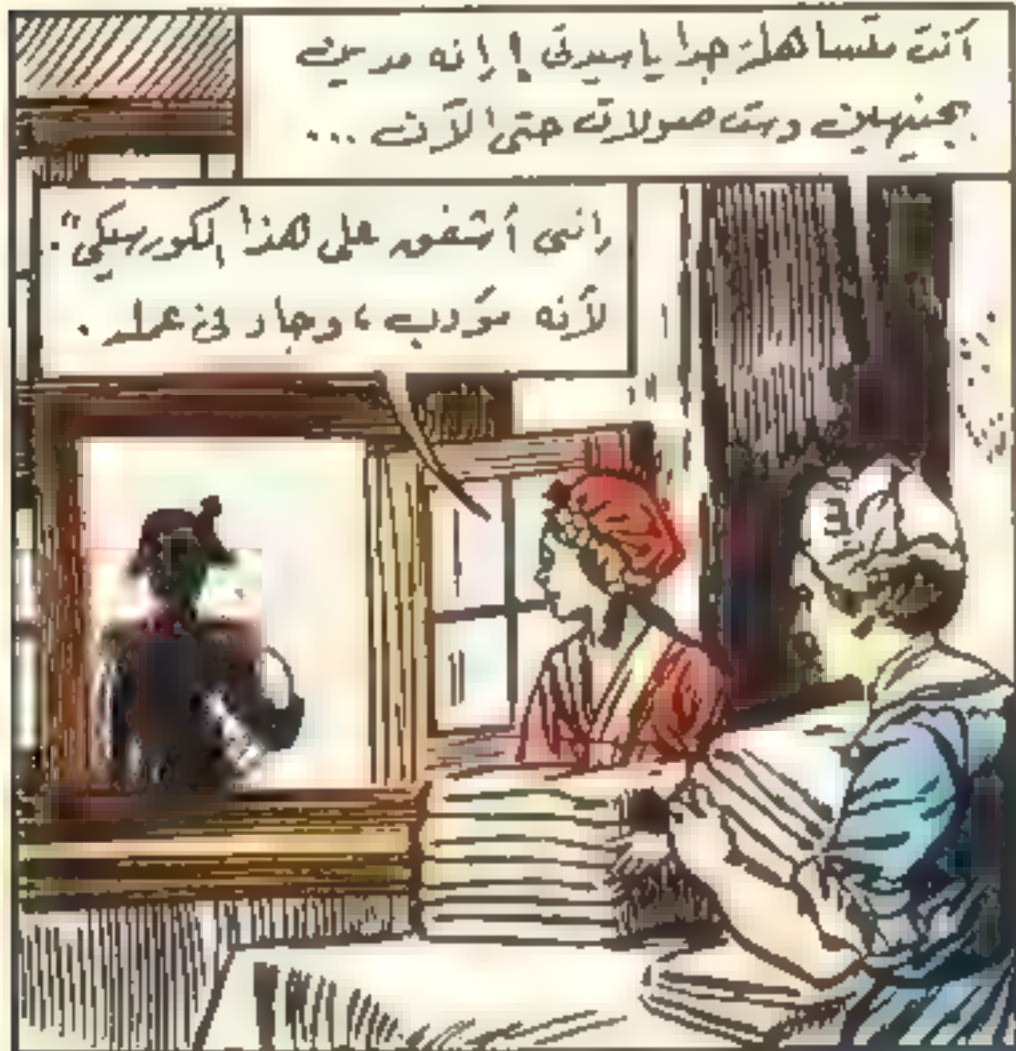 أنت متساهلة جدا يا سيدتى ! إنه مدين
بجنيهين وست صولات حتى الآن ...
إننى أشفق على هذا الكورسيكى".
لأنه مؤدب ، وجاد فى عمله .